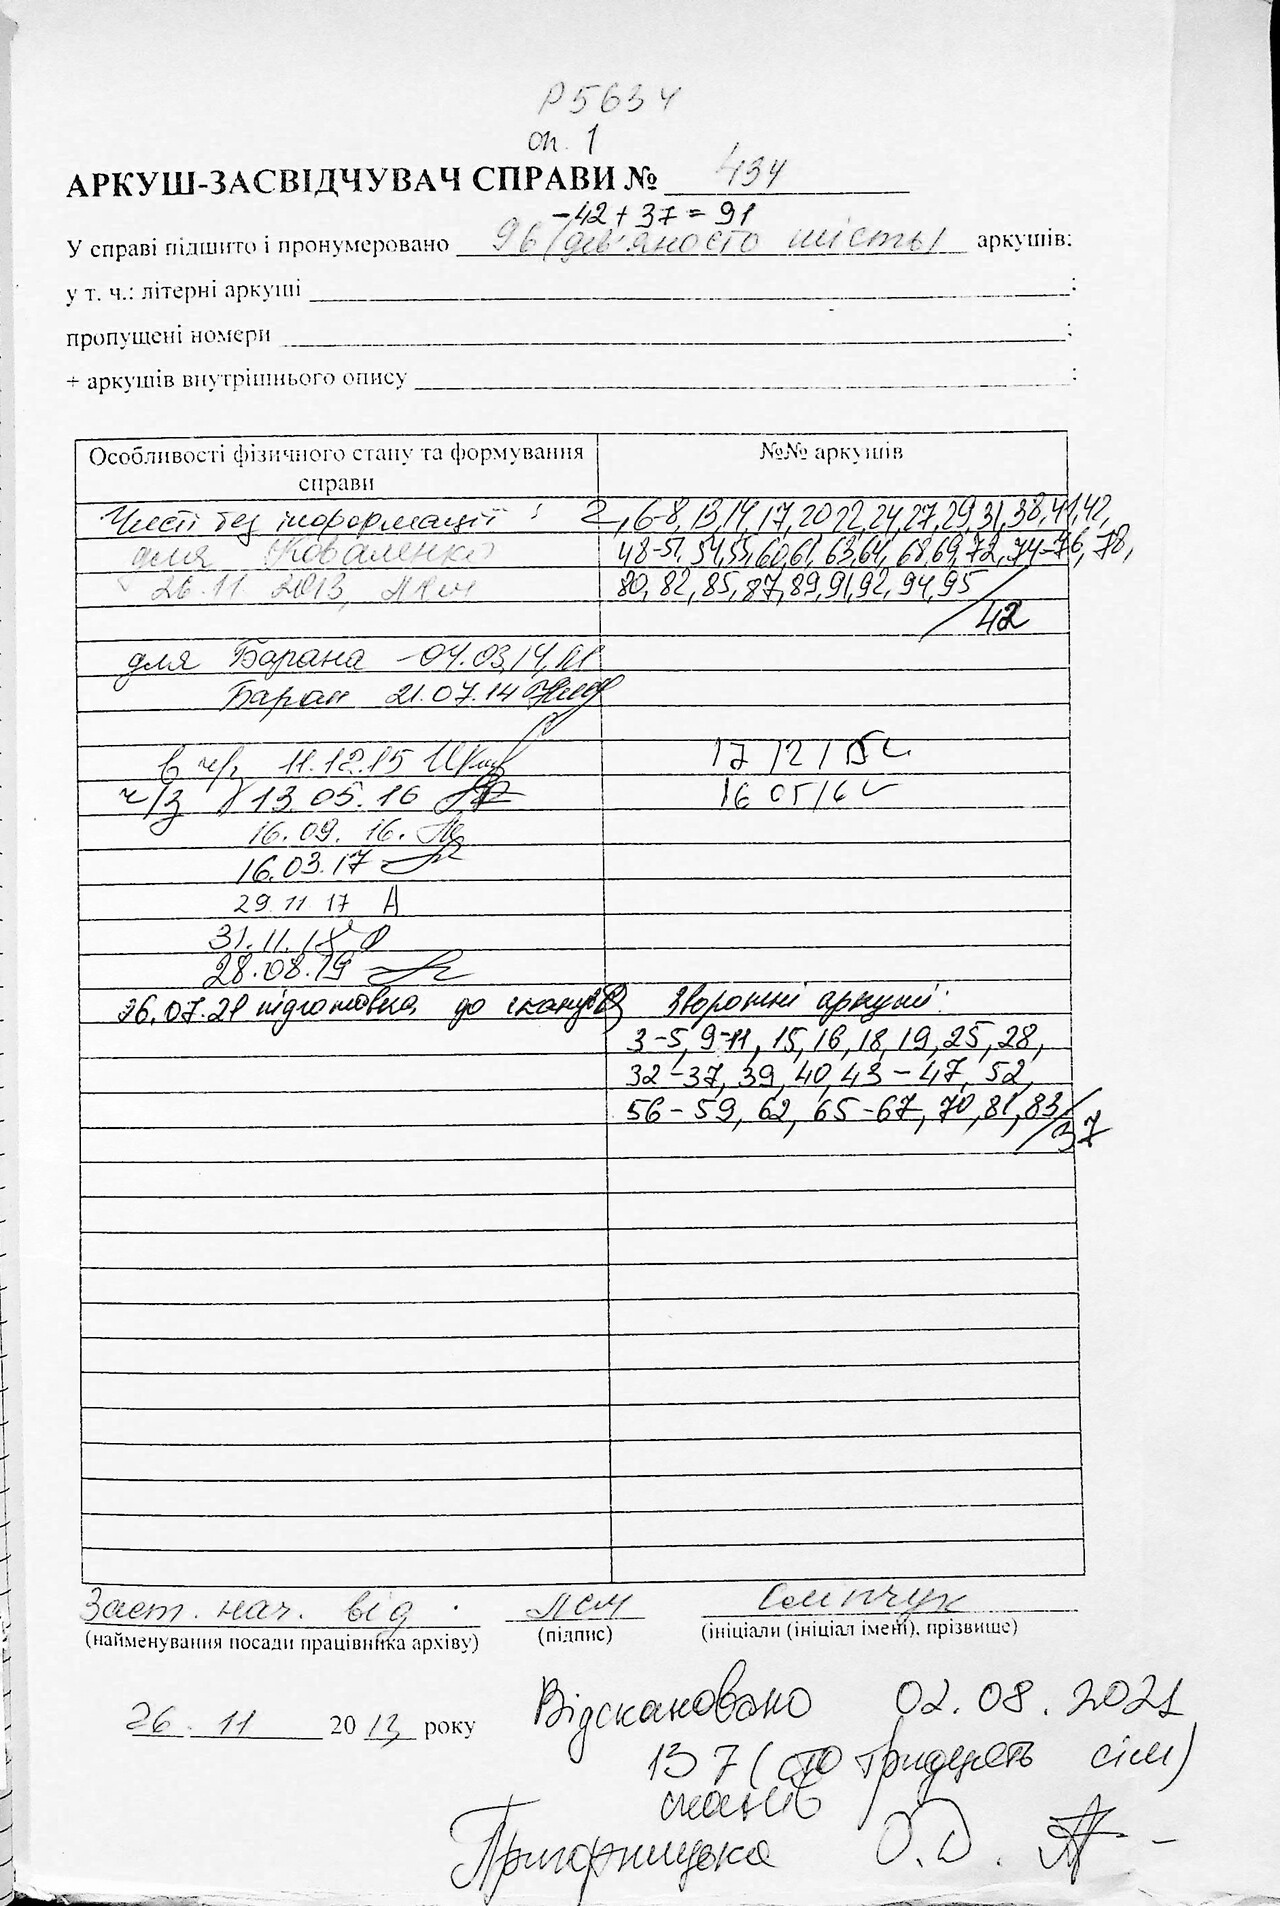 Р5634
оп. 1
АРКУШ-ЗАСВІДЧУВАЧ СПРАВИ № 434
-42 + 37 = 91
У справі підшито і пронумеровано 96 (дев'яносто шість) аркушів;
у т. ч.: літерні аркуші ;
пропущені номери ;
+ аркушів внутрішнього опису ;
Особливості фізичного стану та формування справи №№ аркушів
Чисті без інформації : 2, 6-8, 13, 14, 17, 20, 22, 24, 27, 29, 31, 38, 41, 42,
для Коваленко 48-51, 54, 55, 60, 61, 63, 64, 68, 69, 72, 74-76, 78,
26.11.2013, 80, 82, 85, 87, 89, 91, 92, 94, 95
/42
для Барана - 04.03.14,
Баран 21.07.14
в ч/з 11.12.15 17/12/15
ч/з 13.05.16 16 05/16
16.09.16.
16.03.17
29 11 17 А
31.11.18
28.08.19
26.07.21 підготовка до сканув. Зворотні аркуші:
3-5, 9-11, 15, 16, 18, 19, 25, 28,
32-37, 39, 40, 43-47, 52,
56-59, 62, 65-67, 70, 81, 83
/37
Заст. нач. від.
(найменування посади працівника архіву) (підпис) (ініціали (ініціал імені), прізвище)
26. 11 2013 року
Відскановано 02.08.2021
137 (сто тридцять сім)
сканів
Пригорницька О. D.